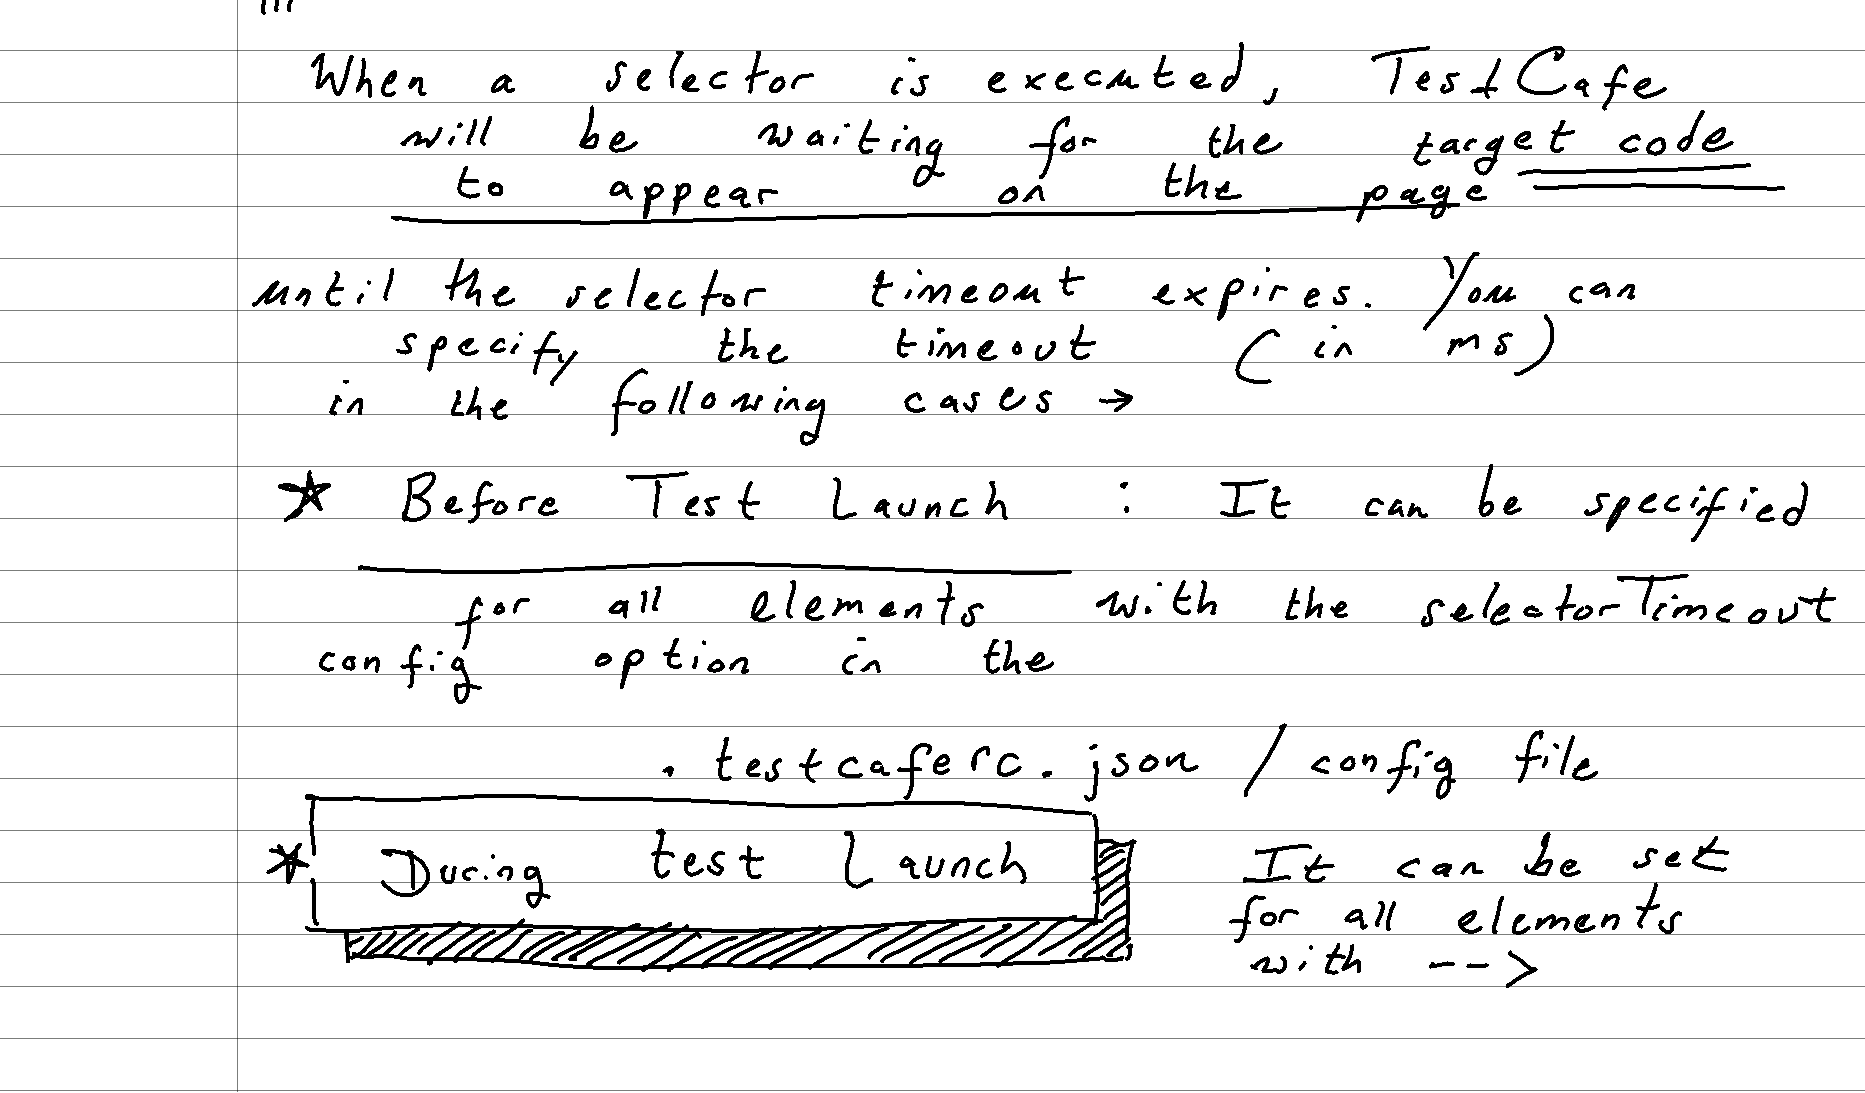 When a selector is executed, TestCafe
will be waiting for the target code
to appear on the page
until the selector timeout expires. You can
specify the timeout (in ms)
in the following cases →
★ Before Test Launch : It can be specified
for all elements with the selectorTimeout
config option in the
.testcaferc.json / config file
★ During test Launch It can be set
for all elements
with -->